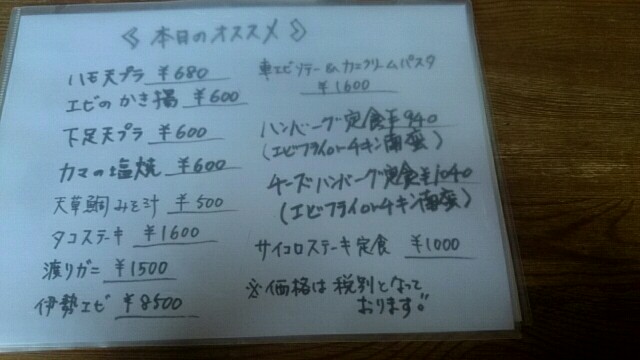 《 本日のオススメ 》
ハモ天プラ ¥680
エビのかき揚 ¥600
下足天プラ ¥600
カマの塩焼 ¥600
天草鯛みそ汁 ¥500
タコステーキ ¥1600
渡りガニ ¥1500
伊勢エビ ¥8500
車エビソテー&カニクリームパスタ
¥1600
ハンバーグ定食 ¥940
(エビフライorチキン南蛮)
チーズハンバーグ定食 ¥1040
(エビフライorチキン南蛮)
サイコロステーキ定食 ¥1000
※価格は税別となって
おります!!